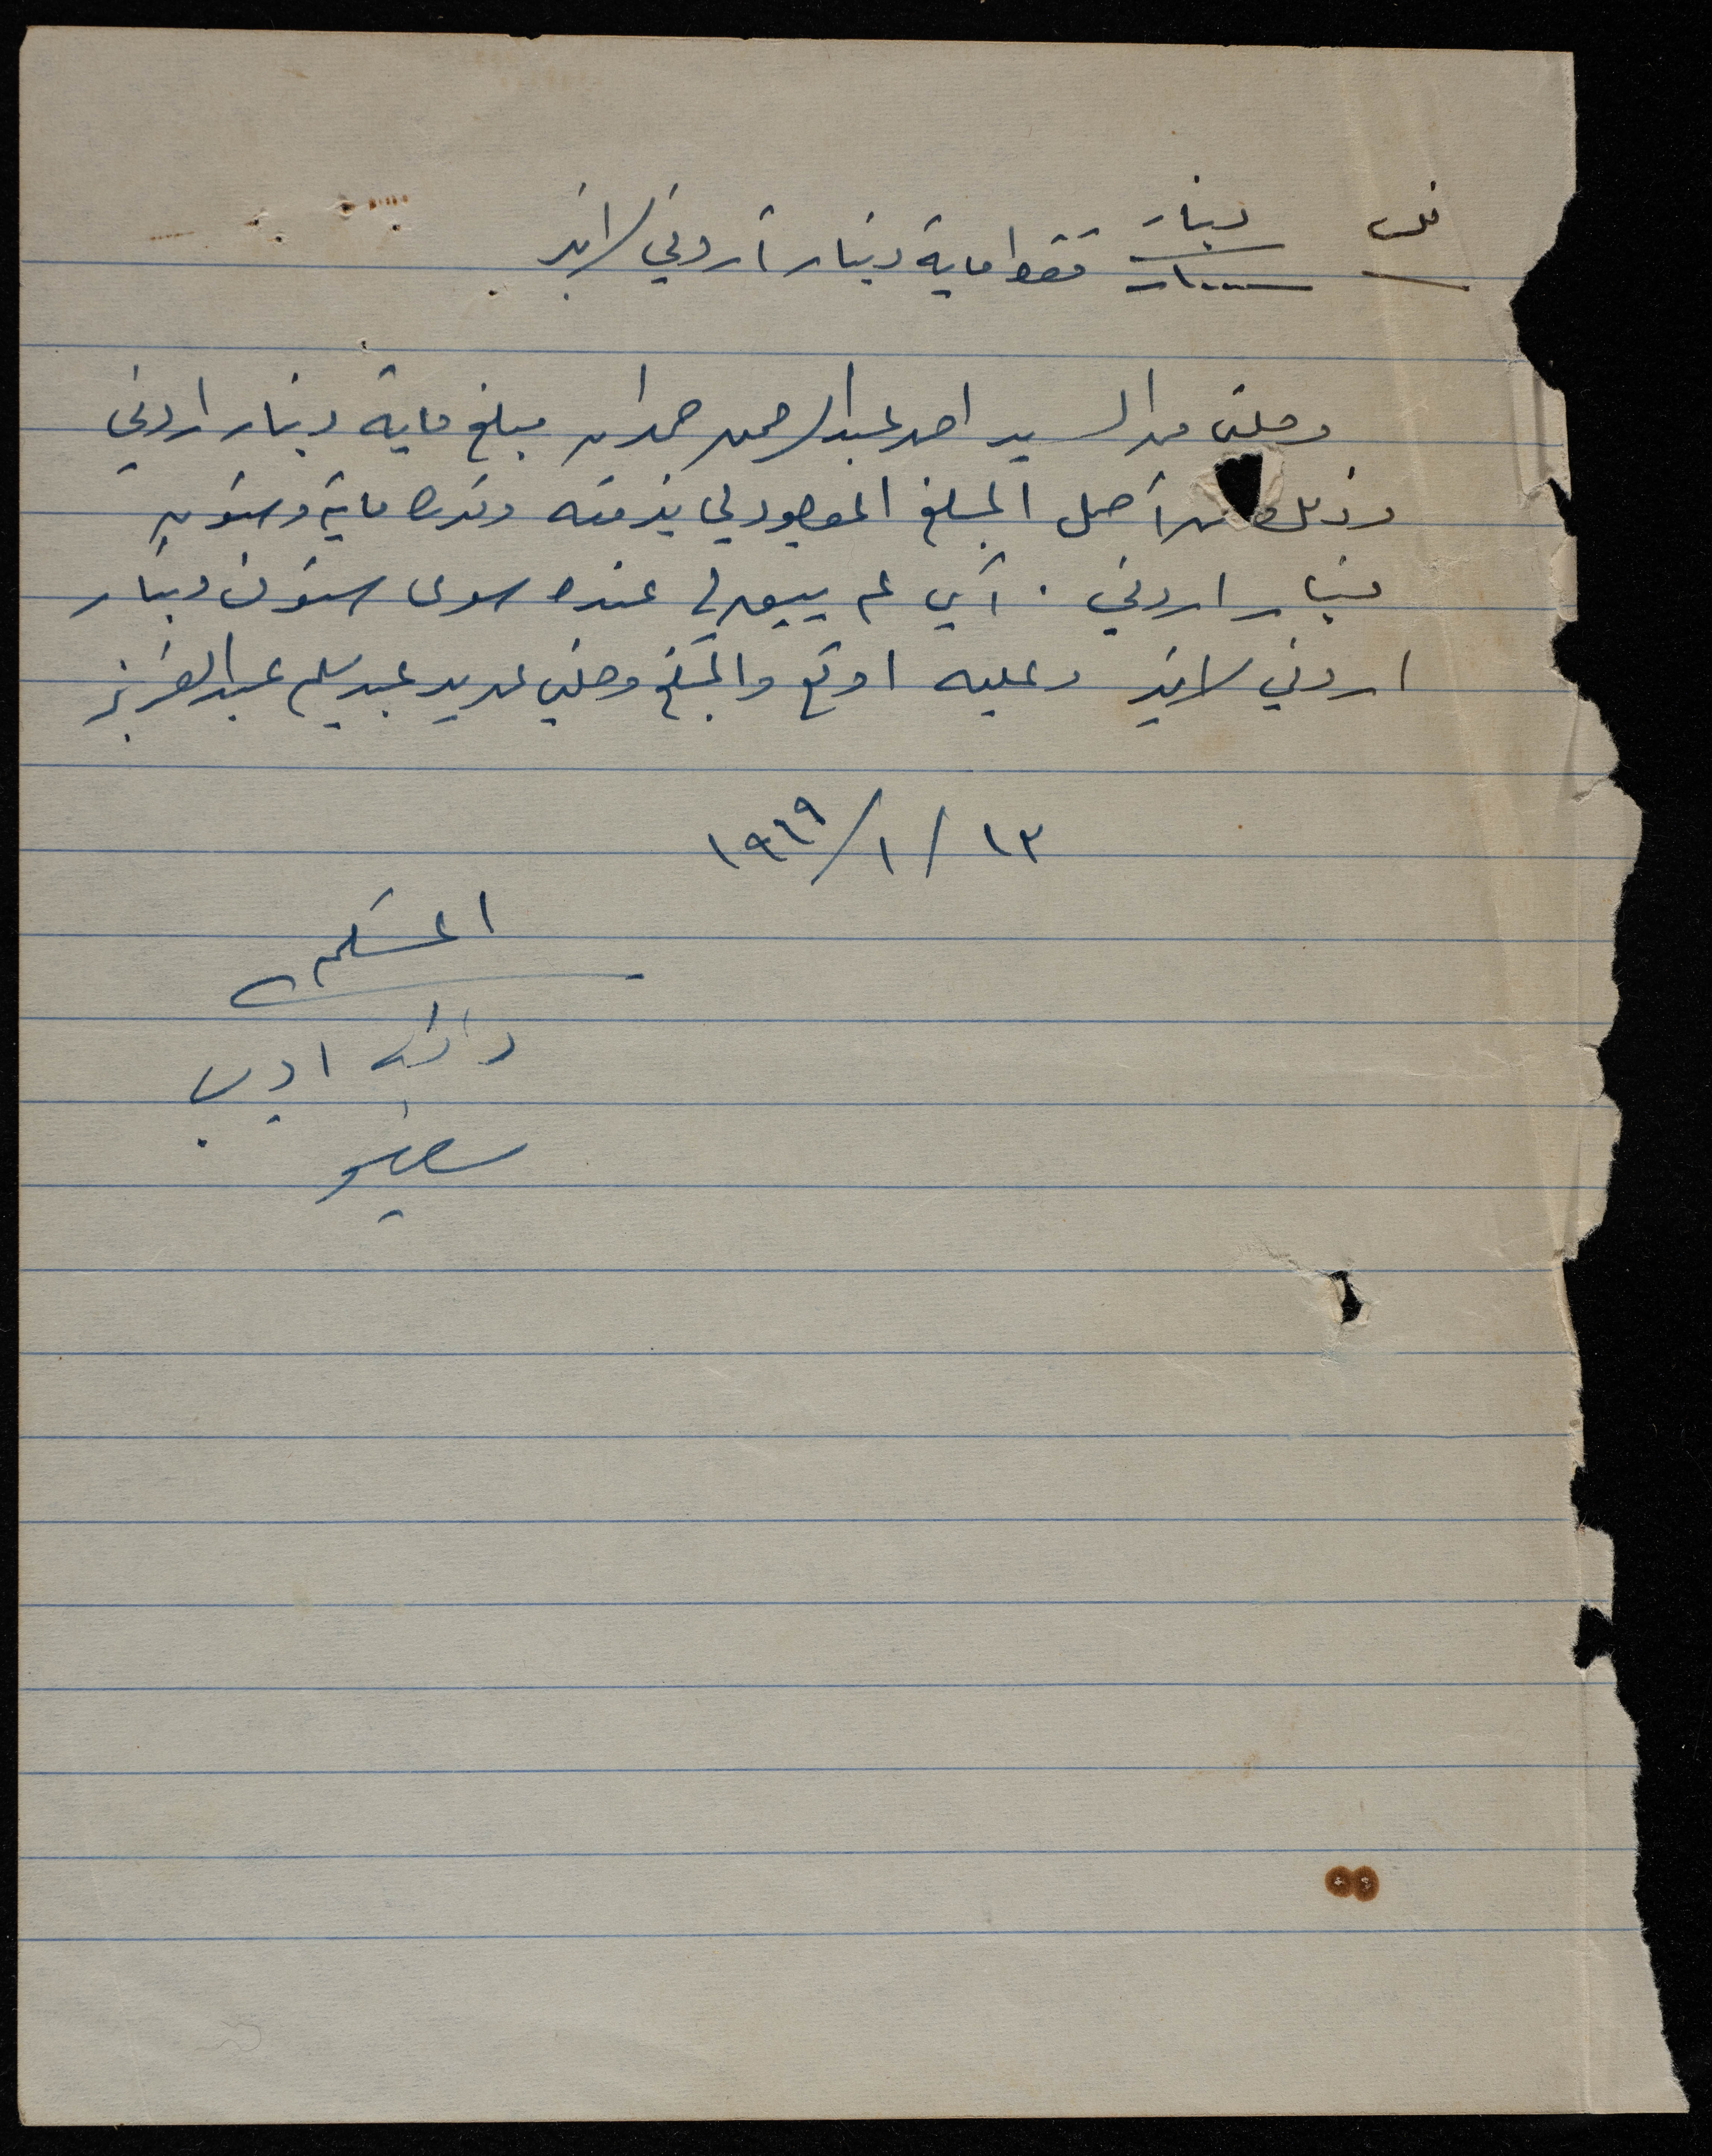 فلس دينار
فقط ماية دينار أردني لا غير
وصلني من السيد احمد عبد الرحمن حمدان مبلغ ماية دينار اردني
وذلك من أصل المبلغ الموجود لي بذمته وقدره ماية وستون
دينار اردني . أي لم يبقى لي عنده سوى ستون دينار
اردني لا غير وعليه اوقع والمبلغ وصلني عن يد عبد سليم عبد العزيز
١٣ / ١ / ١٩٦٩
المستلم
اديب